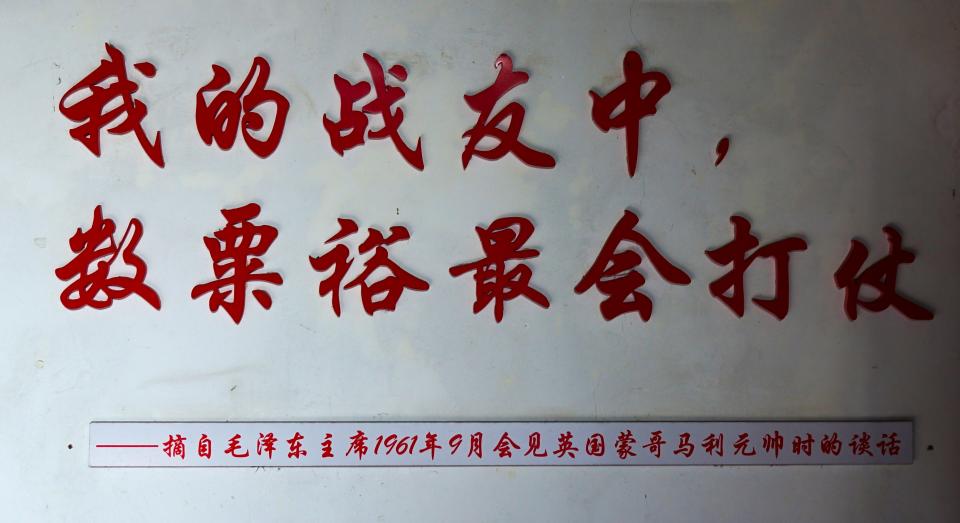 我的战友中，
数粟裕最会打仗
——摘自毛泽东主席1961年9月会见英国蒙哥马利元帅时的谈话